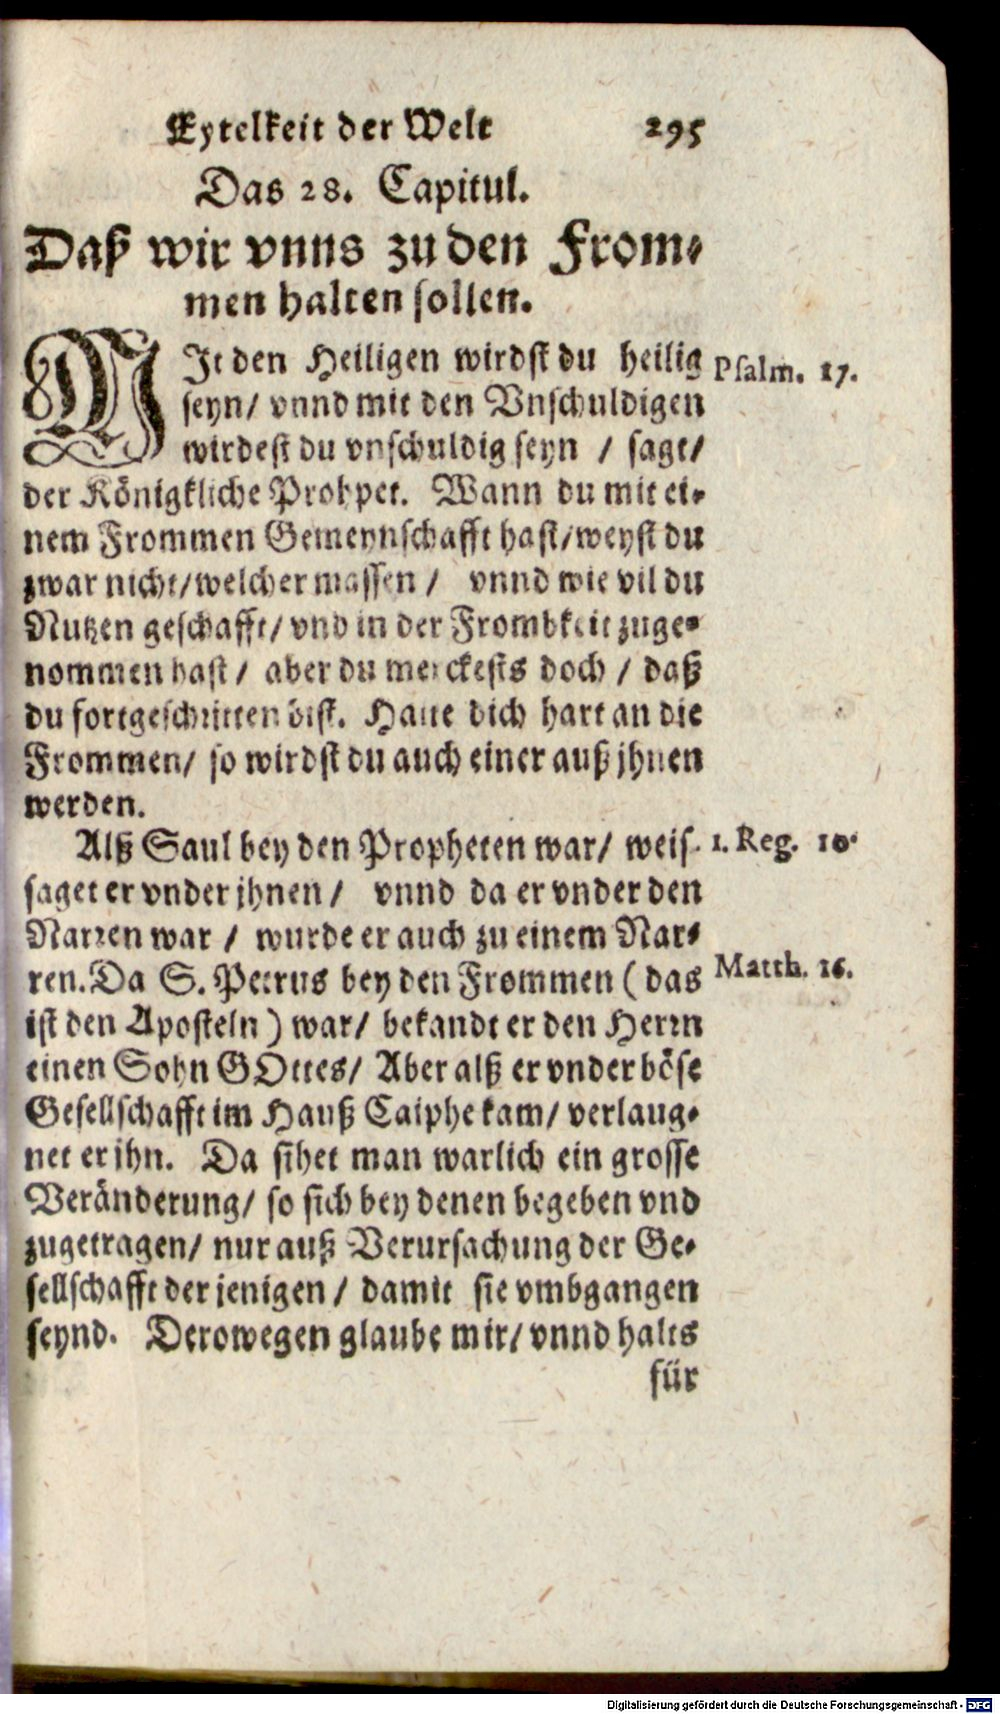 Eytelkeit der Welt 295
Das 28. Capitul.
Daß wir vnns zu den From⸗
men halten sollen.
MIt den Heiligen wirdst du heilig
Psalm. 17.
seyn/ vnnd mit den Vnschuldigen
wirdest du vnschuldig seyn / sagt/
der Königkliche Prohpet. Wann du mit ei⸗
nem Frommen Gemeynschafft hast/weyst du
zwar nicht/welcher massen / vnnd wie vil du
Nutzen geschafft/ vnd in der Frombkeit zuge⸗
nommen hast / aber du merckests doch / daß
du fortgeschritten bist. Halte dich hart an die
Frommen/ so wirdst du auch einer auß jhnen
werden.
Alß Saul bey den Propheten war/ weis⸗
1. Reg. 10.
saget er vnder jhnen / vnnd da er vnder den
Narren war / wurde er auch zu einem Nar⸗
ren. Da S. Petrus bey den Frommen ( das
Matth. 16.
ist den Aposteln ) war/ bekandt er den Herrn
einen Sohn GOttes/ Aber alß er vnder böse
Gesellschafft im Hauß Caiphe kam/ verlaug⸗
net er jhn. Da sihet man warlich ein grosse
Veränderung/ so sich bey denen begeben vnd
zugetragen/ nur auß Verursachung der Ge⸗
sellschafft der jenigen / damit sie vmbgangen
seynd. Derowegen glaube mir/ vnnd halts
für
Digitalisierung gefördert durch die Deutsche Forschungsgemeinschaft - DFG